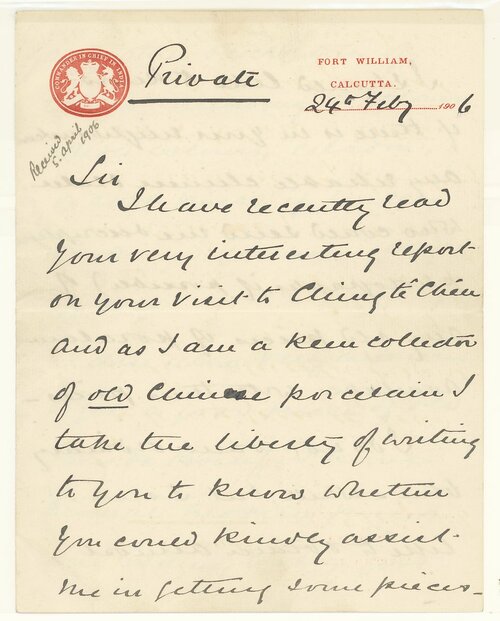 COMMANDER IN CHIEF IN INDIA
Private
FORT WILLIAM,
CALCUTTA.
24th Feby 1906
Received
5. April
1906
Sir
I have recently read
your very interesting report
on your visit to Ching tê Chên
and as I am a keen collector
of old Chinese porcelain I
take the liberty of writing
to you to know whether
you could kindly assist
me in getting some pieces